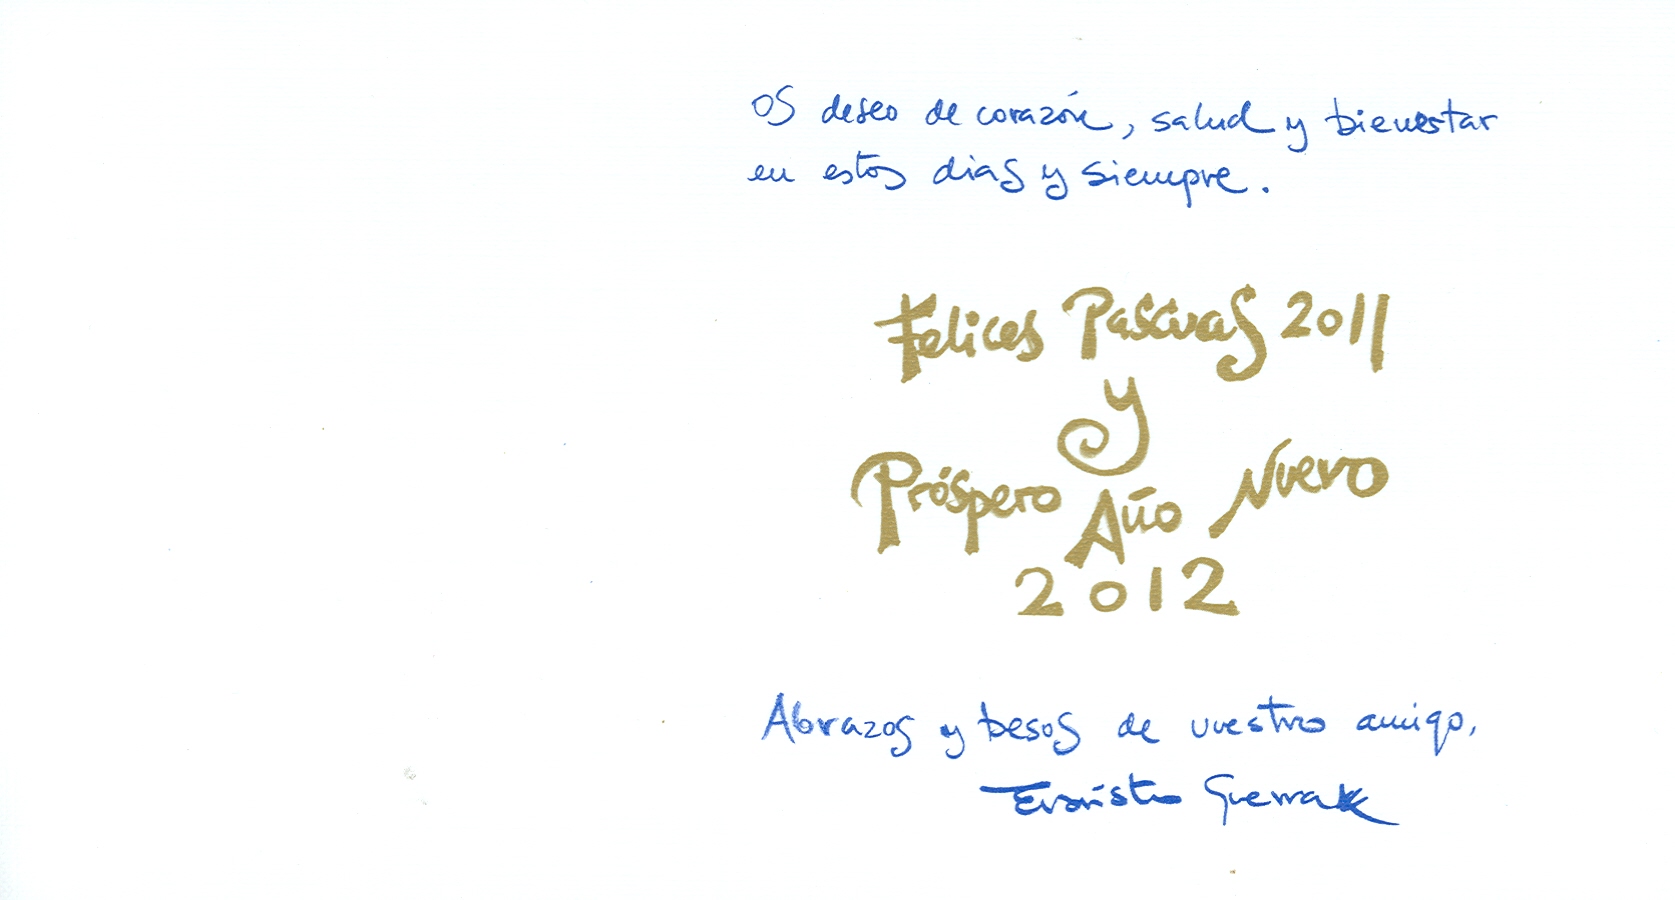 Os deseo de corazón, salud y bienestar
en estos dias y siempre.
Felices Pascuas 2011
y
Próspero Año Nuevo
2012
Abrazos y besos de vuestro amigo,
Evaristo Guerra